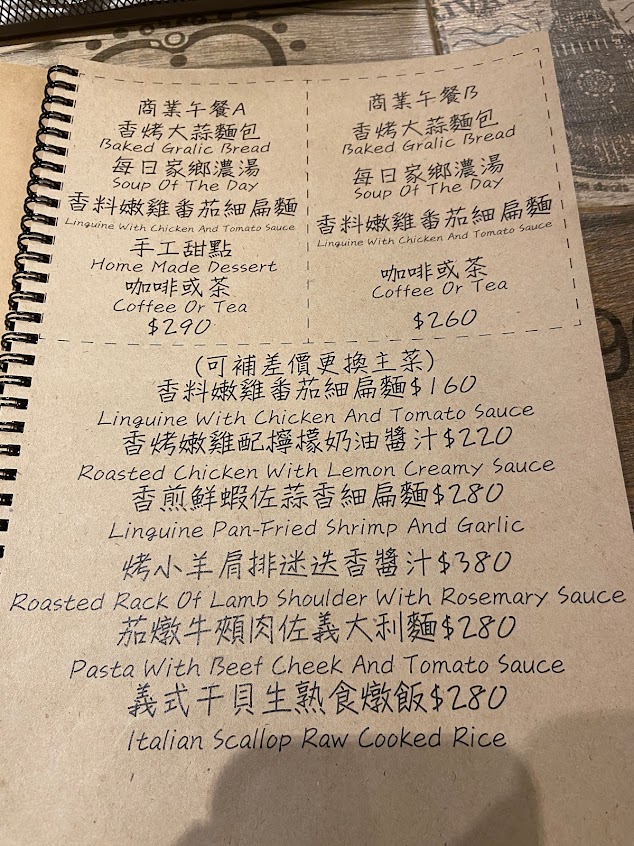 商業午餐A
香烤大蒜麵包
Baked Gralic Bread
每日家鄉濃湯
Soup Of The Day
香料嫩雞番茄細扁麵
Linguine With Chicken And Tomato Sauce
手工甜點
Home Made Dessert
咖啡或茶
Coffee Or Tea
$290
商業午餐B
香烤大蒜麵包
Baked Gralic Bread
每日家鄉濃湯
Soup Of The Day
香料嫩雞番茄細扁麵
Linguine With Chicken And Tomato Sauce
咖啡或茶
Coffee Or Tea
$260
(可補差價更換主菜)
香料嫩雞番茄細扁麵$160
Linguine With Chicken And Tomato Sauce
香烤嫩雞配檸檬奶油醬汁$220
Roasted Chicken With Lemon Creamy Sauce
香煎鮮蝦佐蒜香細扁麵$280
Linguine Pan-Fried Shrimp And Garlic
烤小羊肩排迷迭香醬汁$380
Roasted Rack Of Lamb Shoulder With Rosemary Sauce
茄燉牛頰肉佐義大利麵$280
Pasta With Beef Cheek And Tomato Sauce
義式干貝生熟食燉飯$280
Italian Scallop Raw Cooked Rice